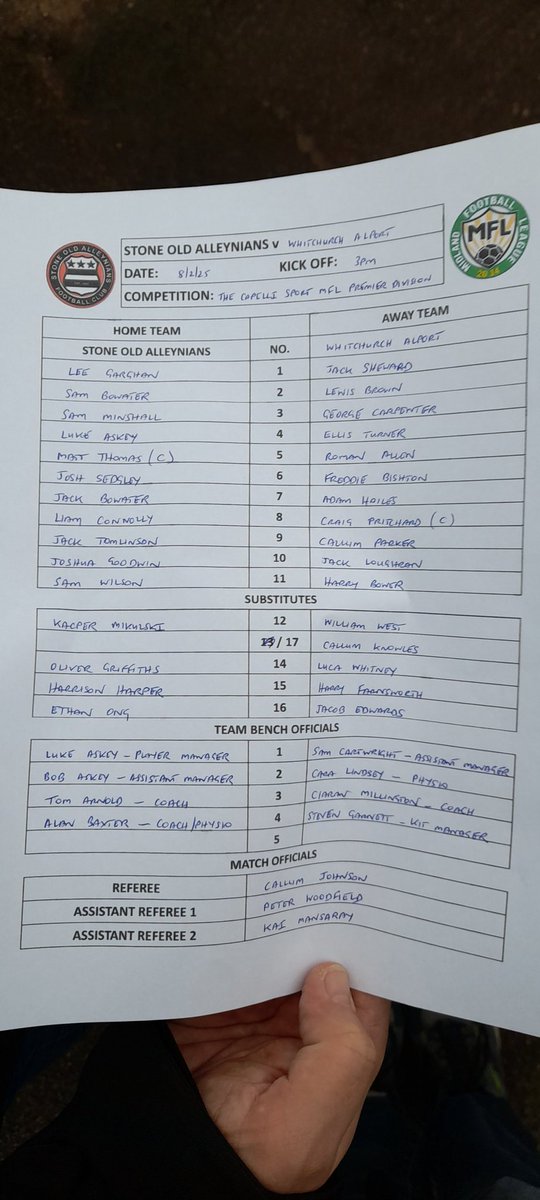 STONE OLD ALLEYNIANS
FOOTBALL CLUB
MIDLAND FOOTBALL LEAGUE
MFL
2014
STONE OLD ALLEYNIANS v WHITCHURCH ALPORT
DATE: 8/2/25 KICK OFF: 3PM
COMPETITION: THE CAPELLI SPORT MFL PREMIER DIVISION
HOME TEAM AWAY TEAM
STONE OLD ALLEYNIANS NO. WHITCHURCH ALPORT
LEE GARGHAN 1 JACK SHEWARD
SAM BOWATER 2 LEWIS BROWN
SAM MINSHALL 3 GEORGE CARPENTER
LUKE ASKEY 4 ELLIS TURNER
MATT THOMAS (C) 5 ROMAN ALLON
JOSH SEDGLEY 6 FREDDIE BISHTON
JACK BOWATER 7 ADAM HOILES
LIAM CONNOLLY 8 CRAIG PRITCHARD (C)
JACK TOMLINSON 9 CALLUM PARKER
JOSHUA GOODWIN 10 JACK LOUGHRAN
SAM WILSON 11 HARRY BOWER
SUBSTITUTES
KACPER MIKULSKI 12 WILLIAM WEST
13 / 17 CALLUM KNOWLES
OLIVER GRIFFITHS 14 LUCA WHITNEY
HARRISON HARPER 15 HARRY FARNSWORTH
ETHAN ONG 16 JACOB EDWARDS
TEAM BENCH OFFICIALS
LUKE ASKEY - PLAYER MANAGER 1 SAM CARTWRIGHT - ASSISTANT MANAGER
BOB ASKEY - ASSISTANT MANAGER 2 CARA LINDSEY - PHYSIO
TOM ARNOLD - COACH 3 CIARAN MILLINGTON - COACH
ALAN BAXTER - COACH/PHYSIO 4 STEVEN GARNETT - KIT MANAGER
5
MATCH OFFICIALS
REFEREE CALLUM JOHNSON
ASSISTANT REFEREE 1 PETER WOODFIELD
ASSISTANT REFEREE 2 KAI MANSARAY